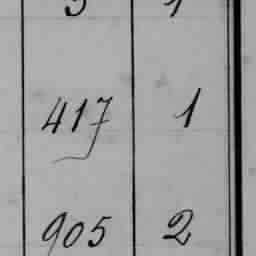 417 1
905 2